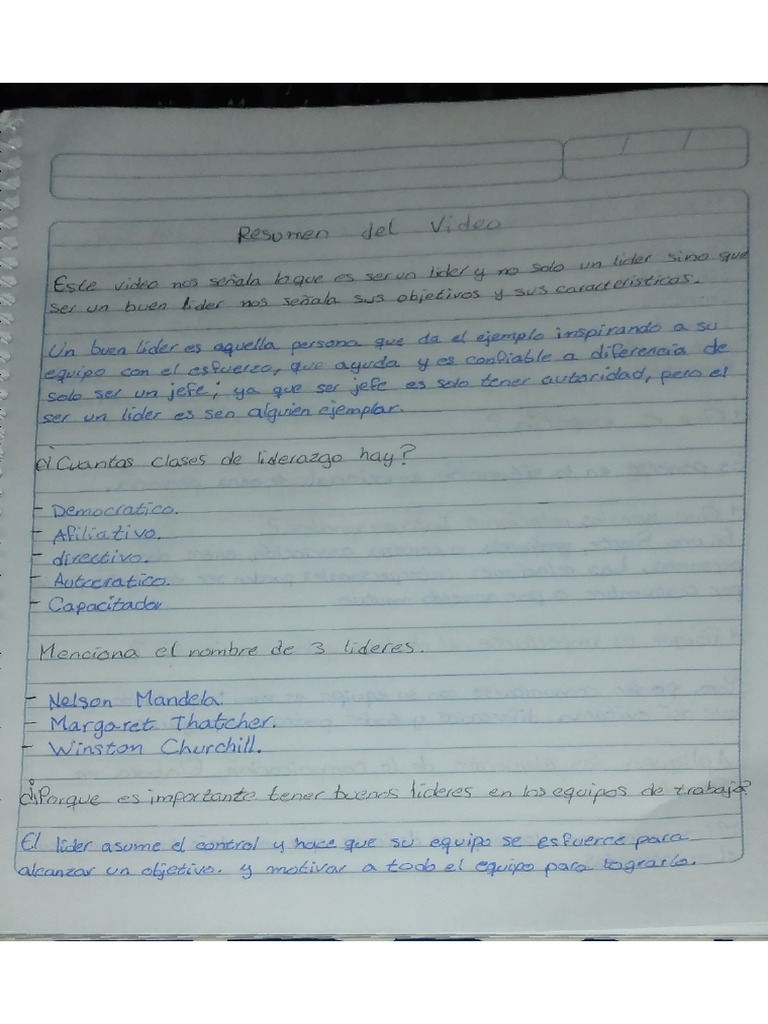 Resumen del Video
Este video nos señala lo que es ser un lider y no solo un lider sino que
ser un buen lider nos señala sus objetivos y sus caracteristicas.
Un buen lider es aquella persona que da el ejemplo inspirando a su
equipo con el esfuerzo, que ayuda y es confiable a diferencia de
solo ser un jefe; ya que ser jefe es solo tener autoridad, pero el
ser un lider es sen alguien ejemplar.
¿Cuantas clases de liderazgo hay?
- Democratico.
- Afiliativo.
- directivo.
- Autocratico.
- Capacitador
Menciona el nombre de 3 lideres.
- Nelson Mandela.
- Margaret Thatcher.
- Winston Churchill.
¿Porque es importante tener buenos lideres en los equipos de trabajo?
El lider asume el control y hace que su equipo se esfuerce para
alcanzar un objetivo. y motivar a todo el equipo para lograrlo.